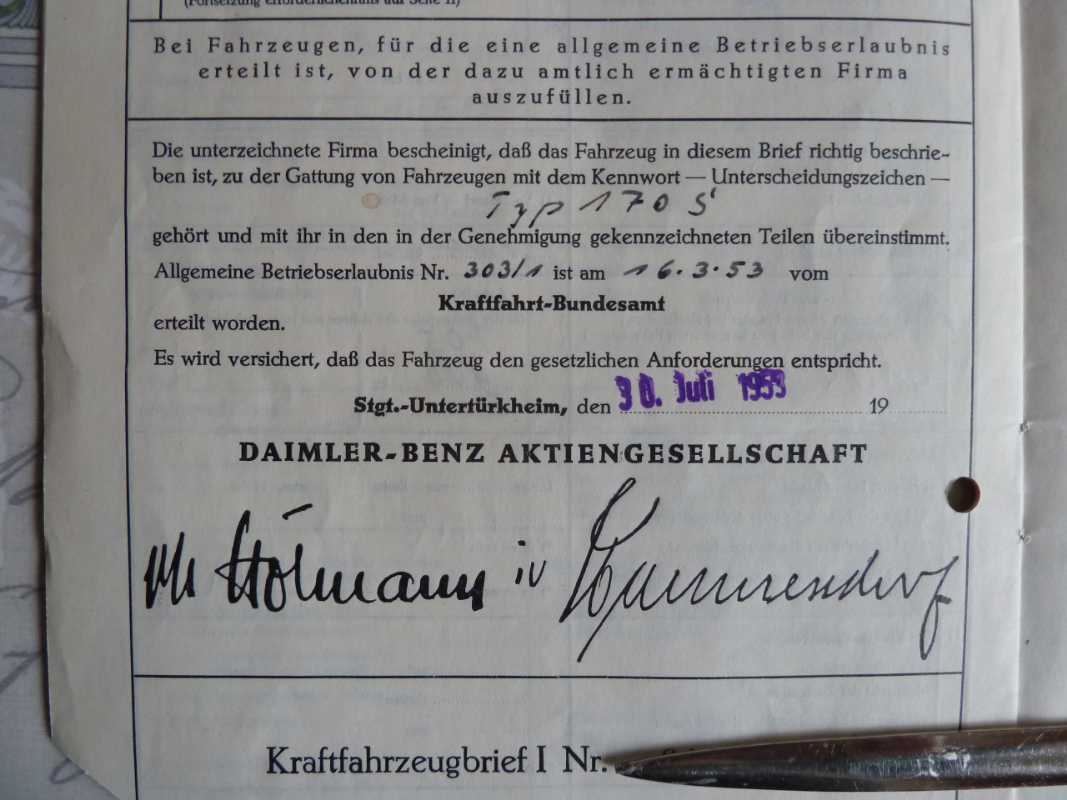 (Fortsetzung erforderlichenfalls auf Seite 11)
Bei Fahrzeugen, für die eine allgemeine Betriebserlaubnis
erteilt ist, von der dazu amtlich ermächtigten Firma
auszufüllen.
Die unterzeichnete Firma bescheinigt, daß das Fahrzeug in diesem Brief richtig beschrie-
ben ist, zu der Gattung von Fahrzeugen mit dem Kennwort — Unterscheidungszeichen —
Typ 170 S
gehört und mit ihr in den in der Genehmigung gekennzeichneten Teilen übereinstimmt.
Allgemeine Betriebserlaubnis Nr. 303/1 ist am 16.3.53 vom
Kraftfahrt-Bundesamt
erteilt worden.
Es wird versichert, daß das Fahrzeug den gesetzlichen Anforderungen entspricht.
Stgt.-Untertürkheim, den 30. Juli 1953 19
DAIMLER-BENZ AKTIENGESELLSCHAFT
Kraftfahrzeugbrief I Nr.